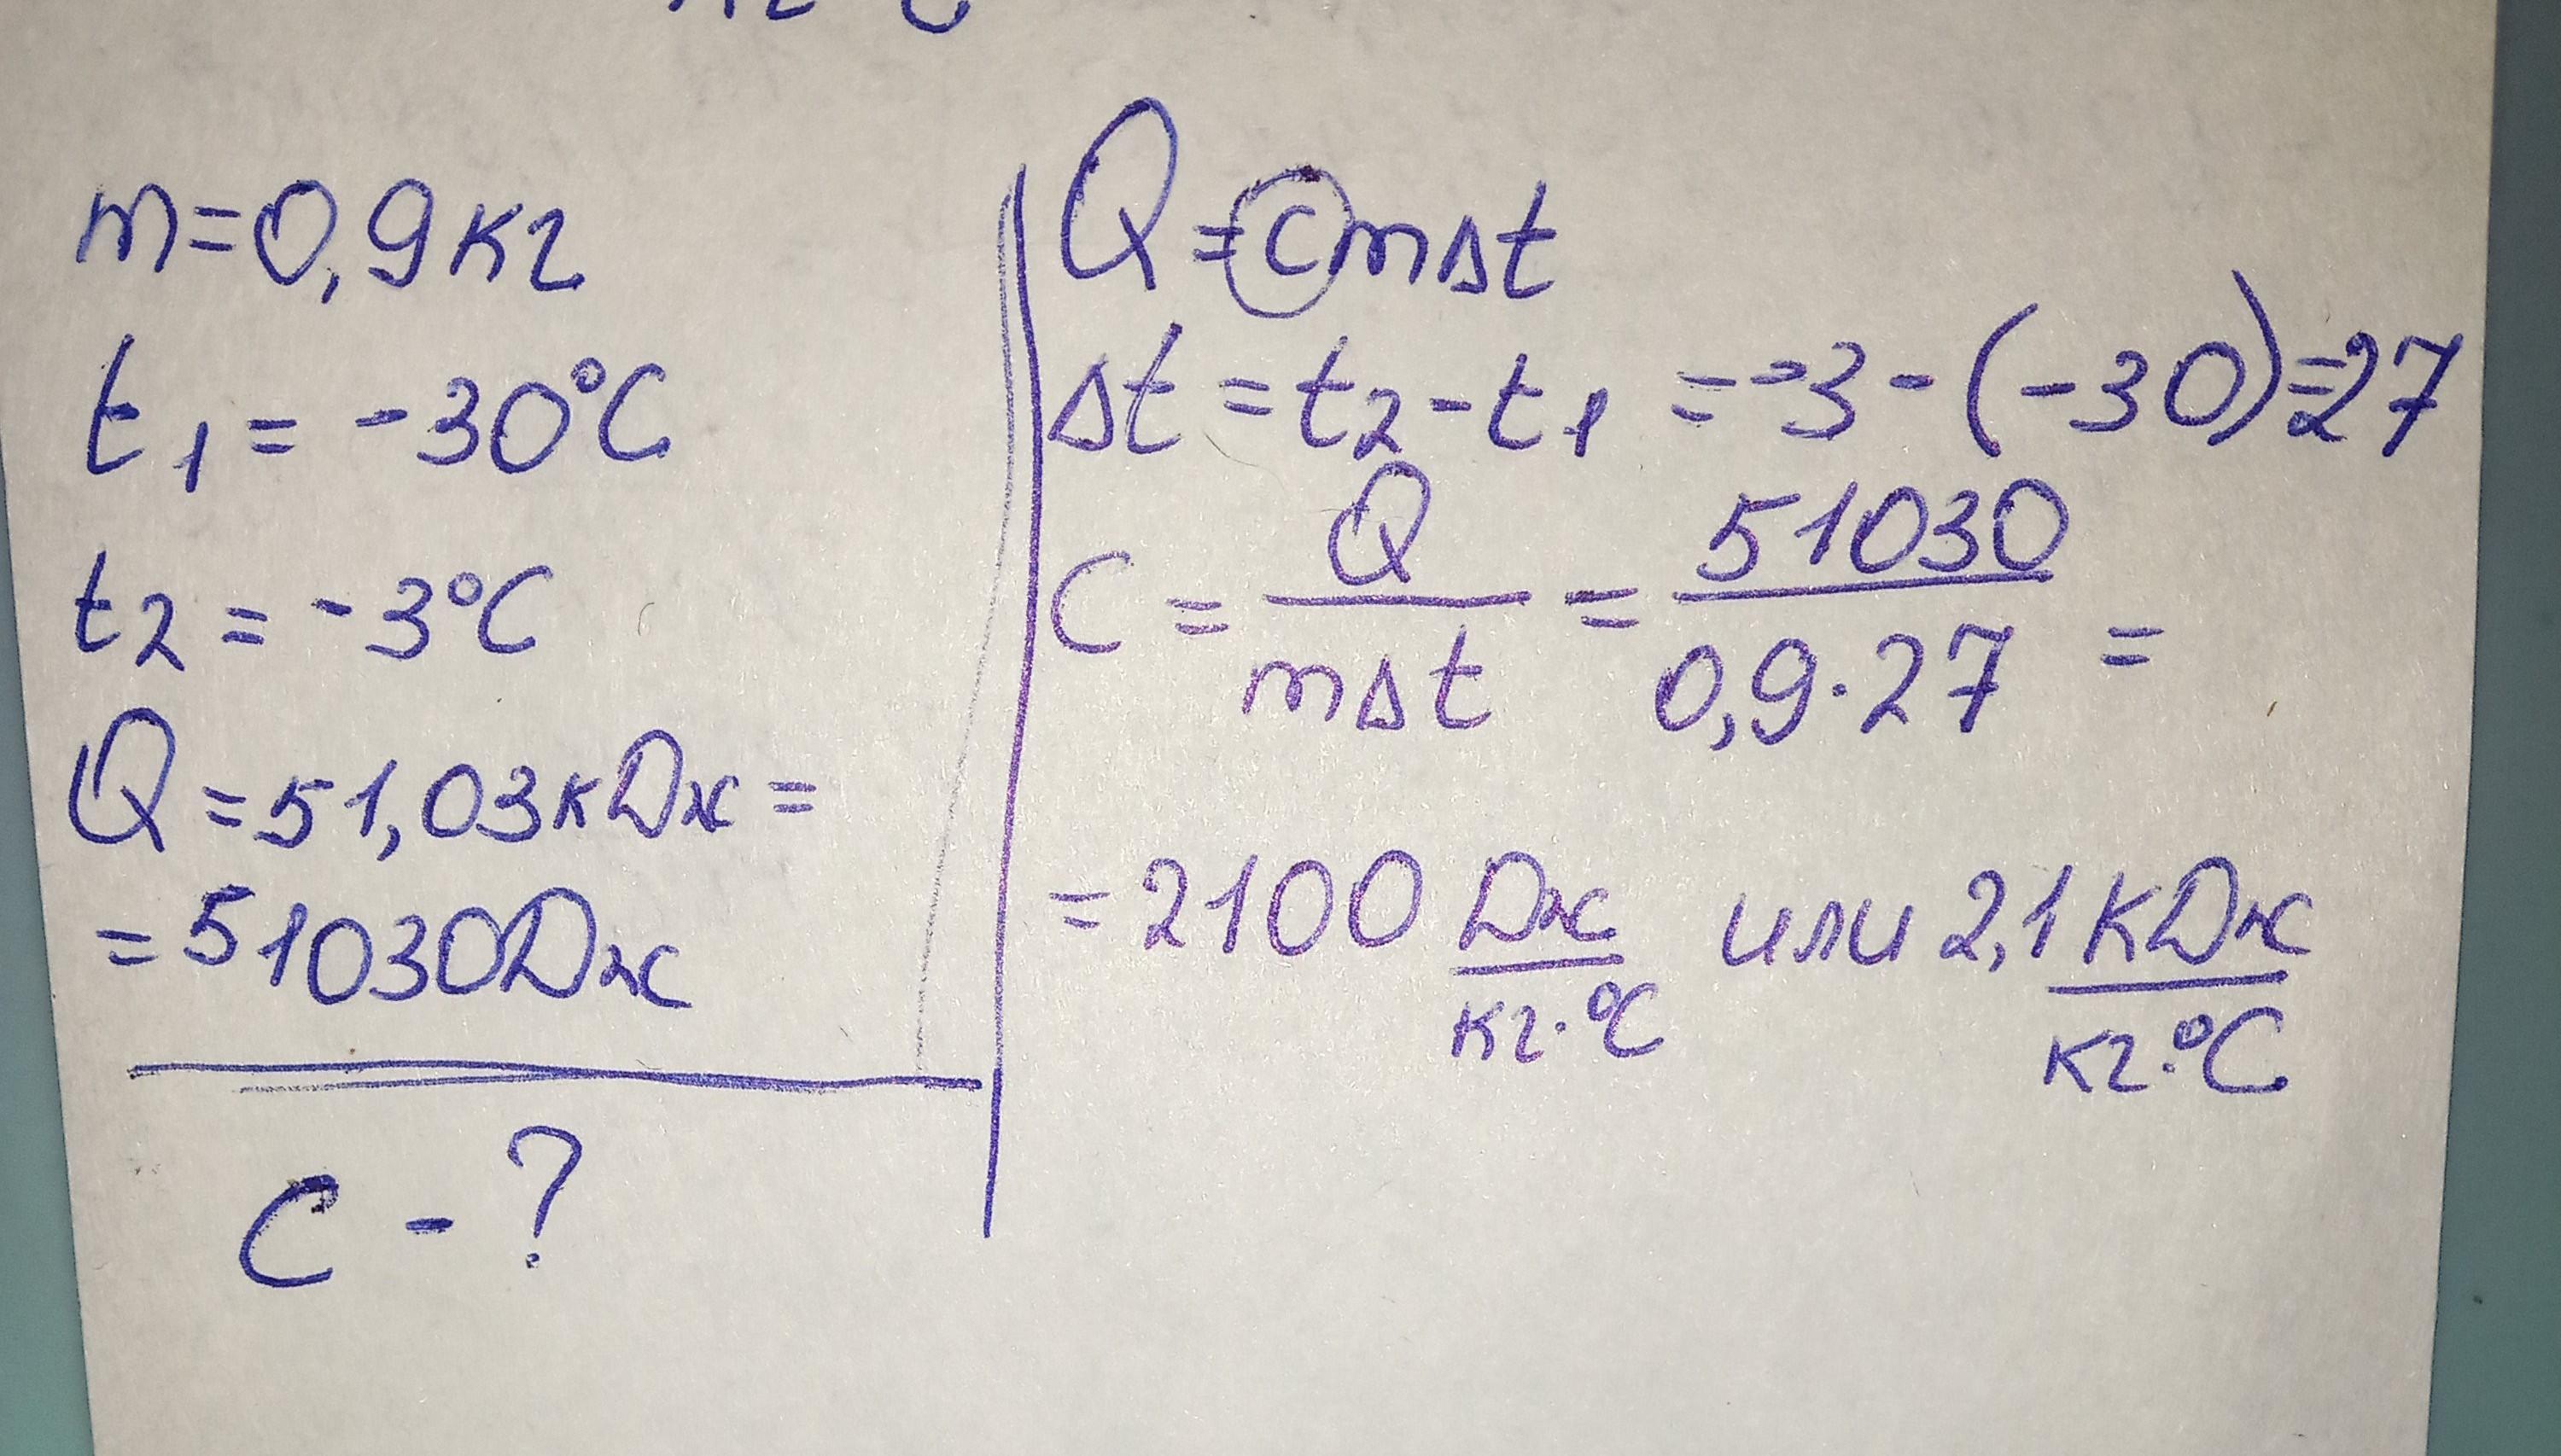 m=0,9кг
t₁ = -30°C
t₂ = -3°C
Q = 51,03кДж =
= 51030Дж
c - ?
Q = cmΔt
Δt = t₂ - t₁ = -3 - (-30) = 27
c = Q/mΔt = 51030/0,9·27 =
= 2100 Дж/кг·°C или 2,1 кДж/кг·°C